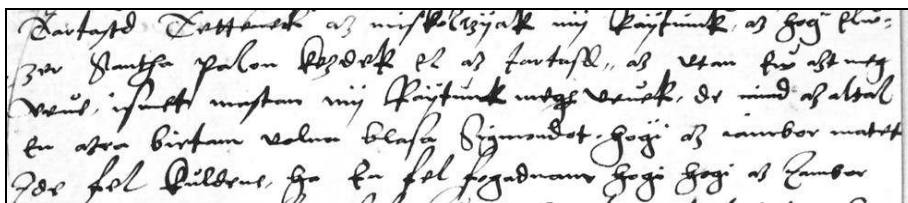 Tartasrd Tettenek az miskolzyak mij Raytunk, az hogi elw-
zer Santha Palon kezdek el az tartast, az utan ew azt meg
veue, ismet mastan mij Raytunk megh veuek, de mind az altal
En arra birtam volna blasa Sigmondot, hogi az iambor matet
Ide fel kuldene, ha En fel fogadnam hogi hogi az Jambor